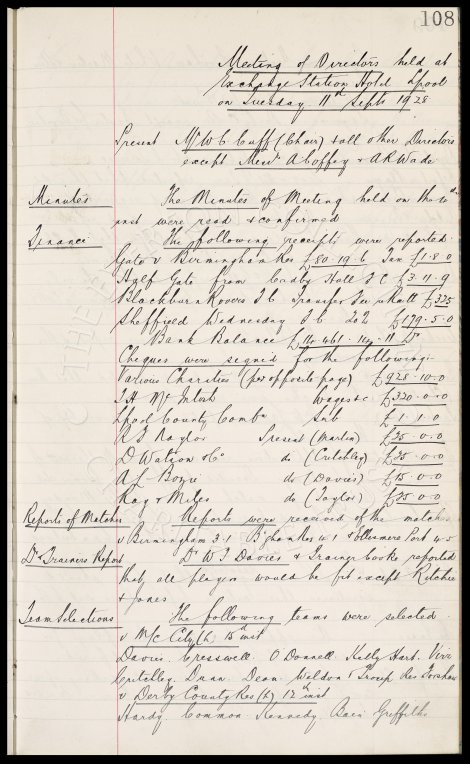 108
Meeting of Directors held at
Exchange Station Hotel Lpool
on Tuesday 11th Septr 1928
Present Mr W C Cuff (Chair) & all other Directors
except Messrs A Coffey & A R Wade
Minutes The Minutes of Meeting held on the
inst were read & confirmed
Finance The following receipts were reported.
Gate v Birmingham Res £80.19.6 Tax £1.8.0
Half Gate from Cadby Hall F C £3.11.9
Blackburn Rovers F C Transfer fee £325
Sheffield Wednesday F C £179.5.0
Bank Balance Dr
Cheques were signed for the following:-
Various Charities (per opposite page) £928.10.0
T H McIntosh Wages &c £320.0.0
Lpool County Combn Sub £1.1.0
R S Naylor Present (Martin) £25.0.0
D Watson & Co do (Critchley) £25.0.0
do (Davies) £15.0.0
Ray & Miles do (Taylor) £25.0.0
Reports of Matches Reports were received of the matches
v Birmingham 3-1 B'gham Res 4-1 & Ellesmere Port 4-5
Dr & Trainers Report Dr W J Davies & Trainer Cooke reported
that all players would be fit except Ritchie
& Jones
Team Selections The following teams were selected.
v M/c City (h) 15th inst
Davies. Cresswell. O'Donnell. Kelly Hart. Virr
Critchley. Dunn. Dean. Weldon & Troup. Res Forshaw
v Derby County Res (h) 12th inst
Hardy Common Kennedy. Bain Griffiths